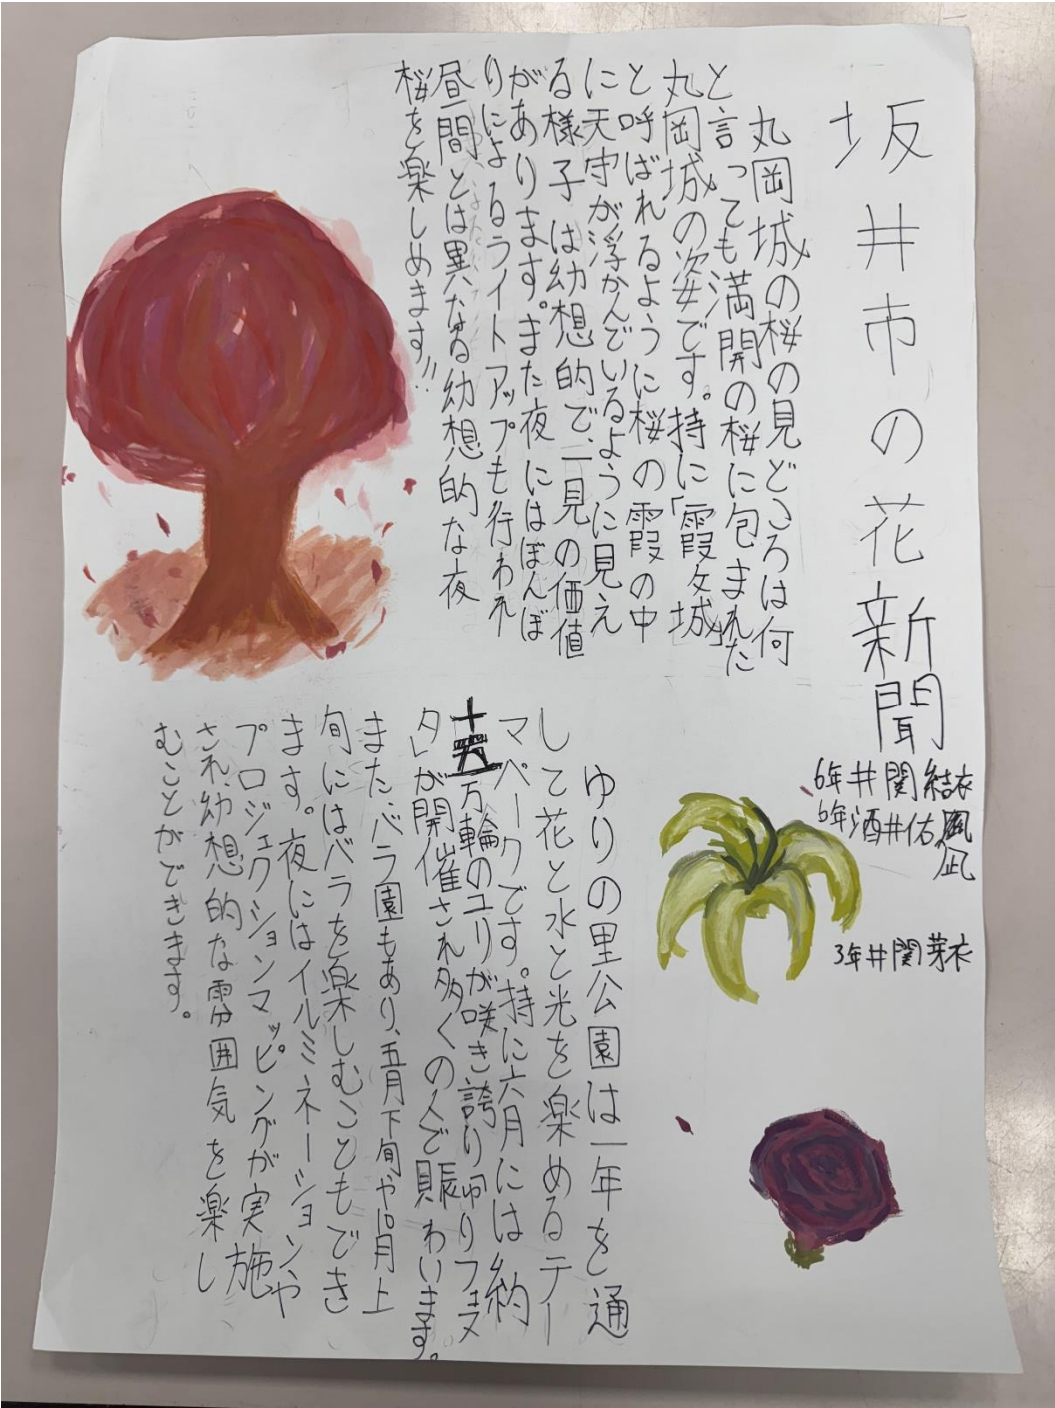 坂井市の花新聞
丸岡城の桜の見どころは何
と言っても満開の桜に包まれた
丸岡城の姿です。持に「霞ヶ城」
と呼ばれるように桜の霞の中
に天守が浮かんでいるように見え
る様子は幼想的で、一見の価値
があります。また夜にはぼんぼ
りによるライトアップも行われ
昼間とは異なる幼想的な夜
桜を楽しめます!!
6年井関結衣
6年酒井佑凪
3年井関芽衣
ゆりの里公園は一年を通
して花と水と光を楽めるテー
マパークです。持に六月には約
十五万輪のユリが咲き誇り「ゆりフェス
タ」が開催され多くの人で賑わいます。
また、バラ園もあり、五月下旬や10月上
旬にはバラを楽しむこともでき
ます。夜にはイルミネーションや
プロジェクションマッピングが実施
され、幼想的な雰囲気を楽し
むことができます。